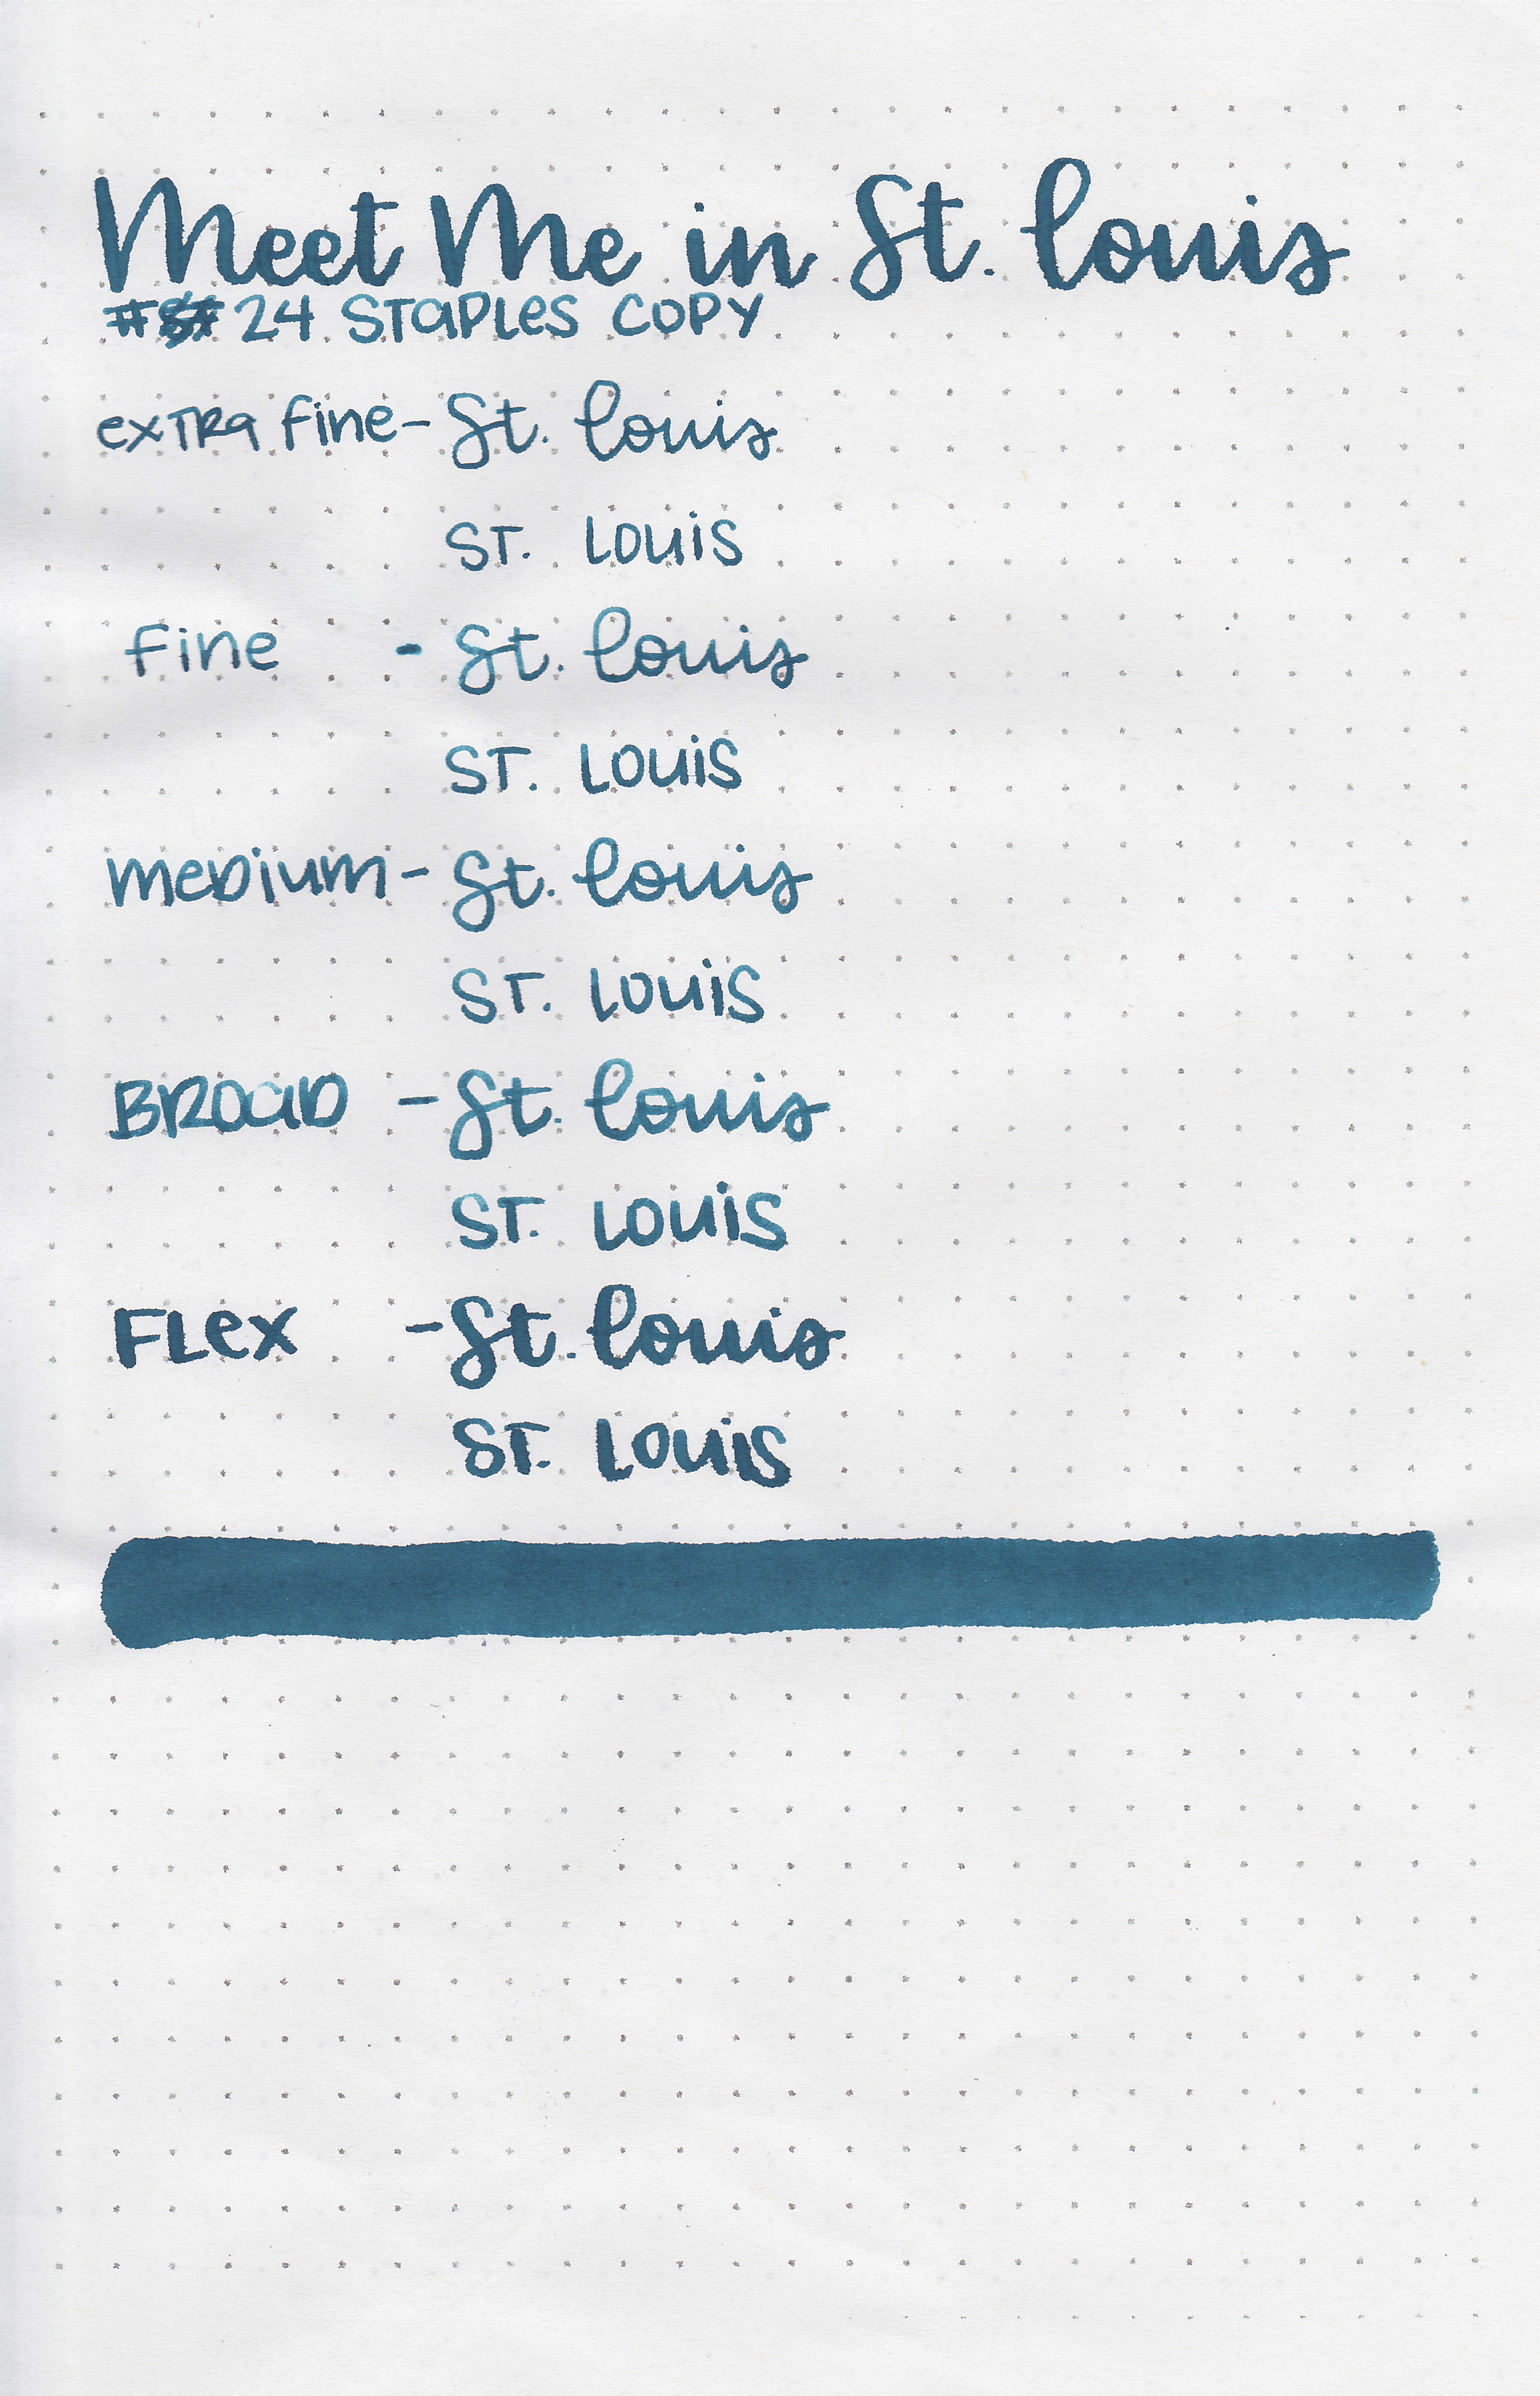 Meet Me in St. Louis
# 24 Staples Copy
extra fine - St. Louis
St. Louis
Fine - St. Louis
St. Louis
Medium - St. Louis
St. Louis
Broad - St. Louis
St. Louis
Flex - St. Louis
St. Louis